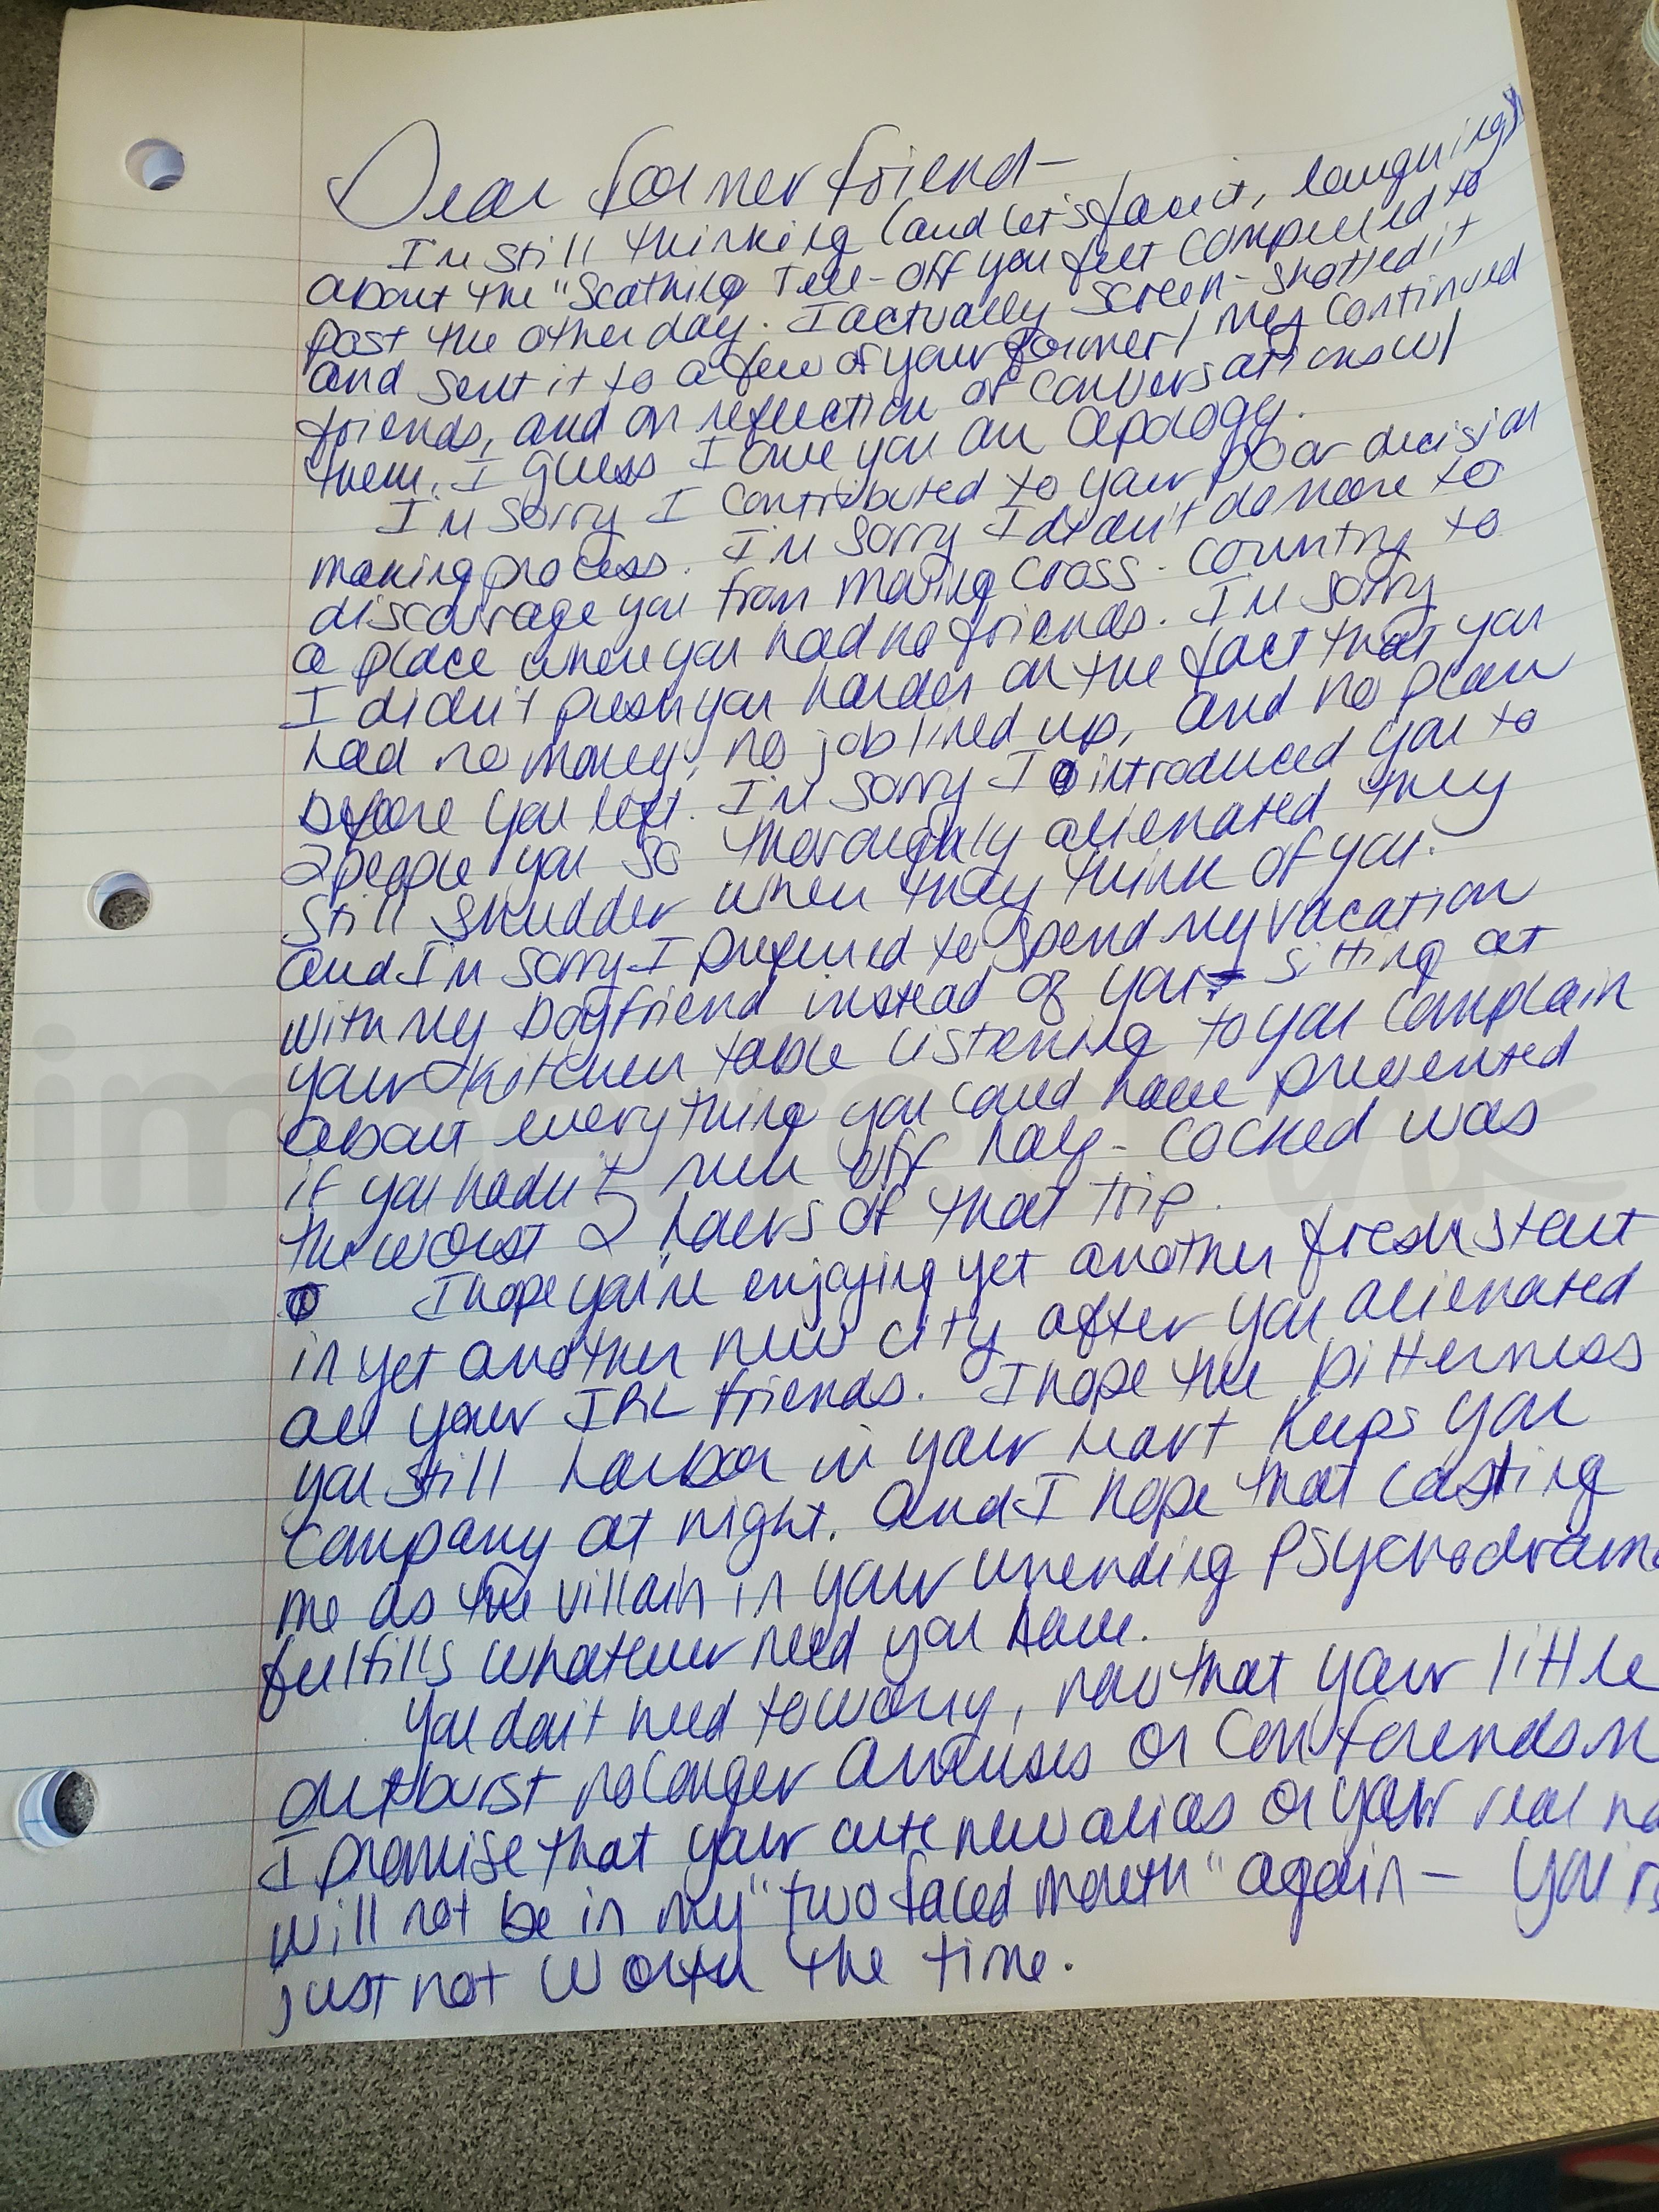 Dear former friend-
I'm still thinking (and let's face it, laughing)
about the "scathing Tell-off you felt compelled to
post the other day. I actually screen-shotted it
and sent it to a few of your former/ my continued
friends, and on reflection of conversations w/
them, I guess I owe you an apology.
I'm sorry I contributed to your poor decision
making process. I'm sorry I didn't do more to
discourage you from moving cross-country to
a place where you had no friends. I'm sorry
I didn't push you harder on the fact that you
had no money, no job lined up, and no plan
before you left. I'm sorry I introduced you to
2 people you so thoroughly alienated they
still shudder when they think of you.
And I'm sorry I preferred to spend my vacation
with my boyfriend instead of you- sitting at
your kitchen table listening to you complain
about everything you could have prevented
if you hadn't run off half-cocked was
the worst 2 hours of that trip.
I hope you're enjoying yet another fresh start
in yet another new city after you alienated
all your IRL friends. I hope the bitterness
you still harbor in your heart keeps you
company at night. And I hope that casting
me as the villain in your unending psychodrama
fulfills whatever need you have.
You don't need to worry, now that your little
outburst no longer amuses or confounds m
I promise that your cute new alias or your real na
will not be in my "two faced mouth" again- you're
just not worth the time.
imgflip.ink